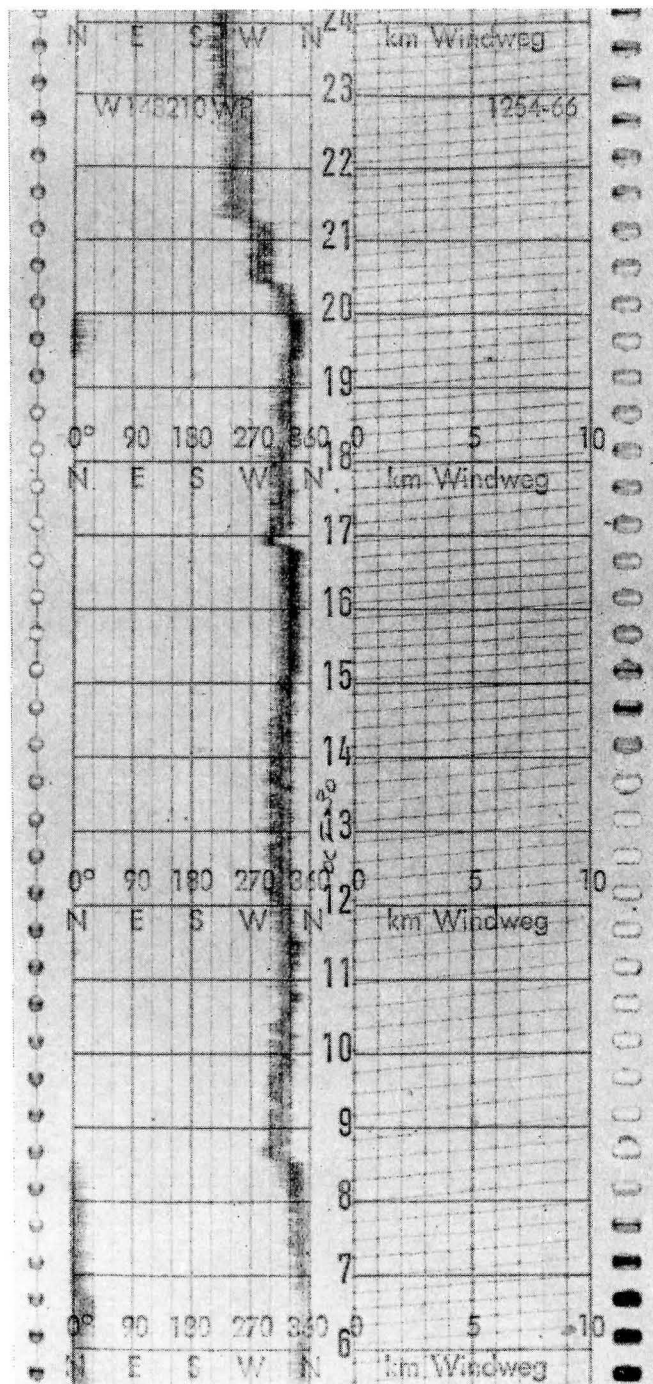 N E S W N 24 km Windweg
23
W 148210 WP 1254-66
22
21
20
19
0° 90 180 270 360 0 5 10
18
N E S W N km Windweg
17
16
15
14
13
0° 90 180 270 360 0 5 10
12
N E S W N km Windweg
11
10
9
8
7
0° 90 180 270 360 0 5 10
6
N E S W N km Windweg